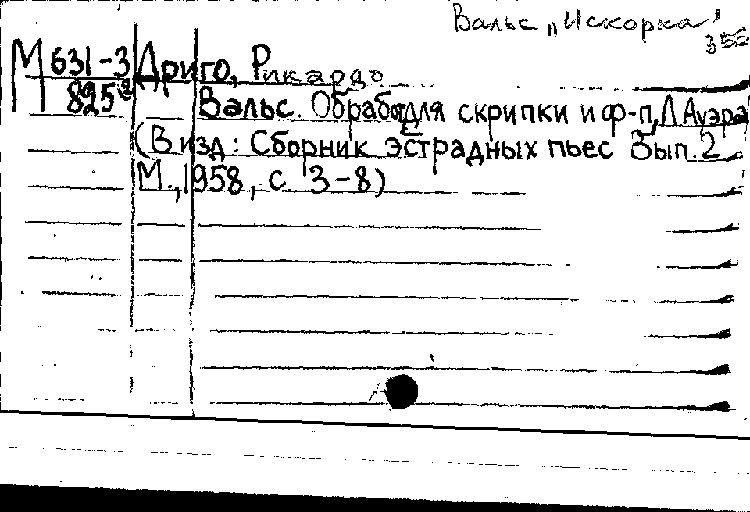 Вальс „Искорка"
М 631-3 Дриго, Рикардо
825 Вальс. Обработ. для скрипки и ф-п. Л Ауэра
(В изд: Сборник эстрадных пьес Вып. 2
М., 1958, с 3-8)